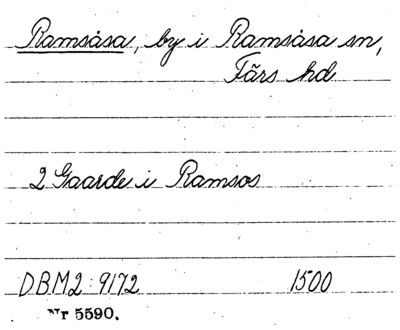 Ramsåsa, by i Ramsåsa sn,
Färs hd
2 Gaarde i Ramsos
DBM2 9172 1500
Nr 5590.